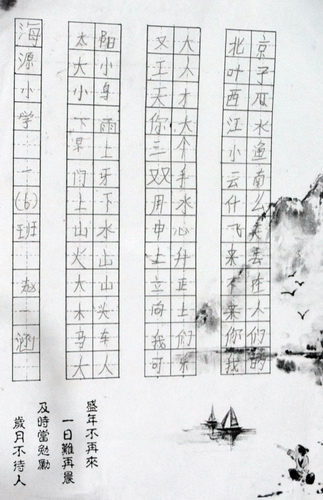 海源小学一(6)班 赵一涵
太阳
大小
小鸟
下雨
土
门牙
上下
山水
火山
大山
木头
车
大人
又大
王人
天才
你大
三个
双手
用水
中心
上升
立正
向上
我们
可乐
北京
叶子
西瓜
江水
小鱼
云南
什么
飞走
来去
不在
来人
你们
我的
盛年不再來
一日難再晨
及時當勉勵
歲月不待人